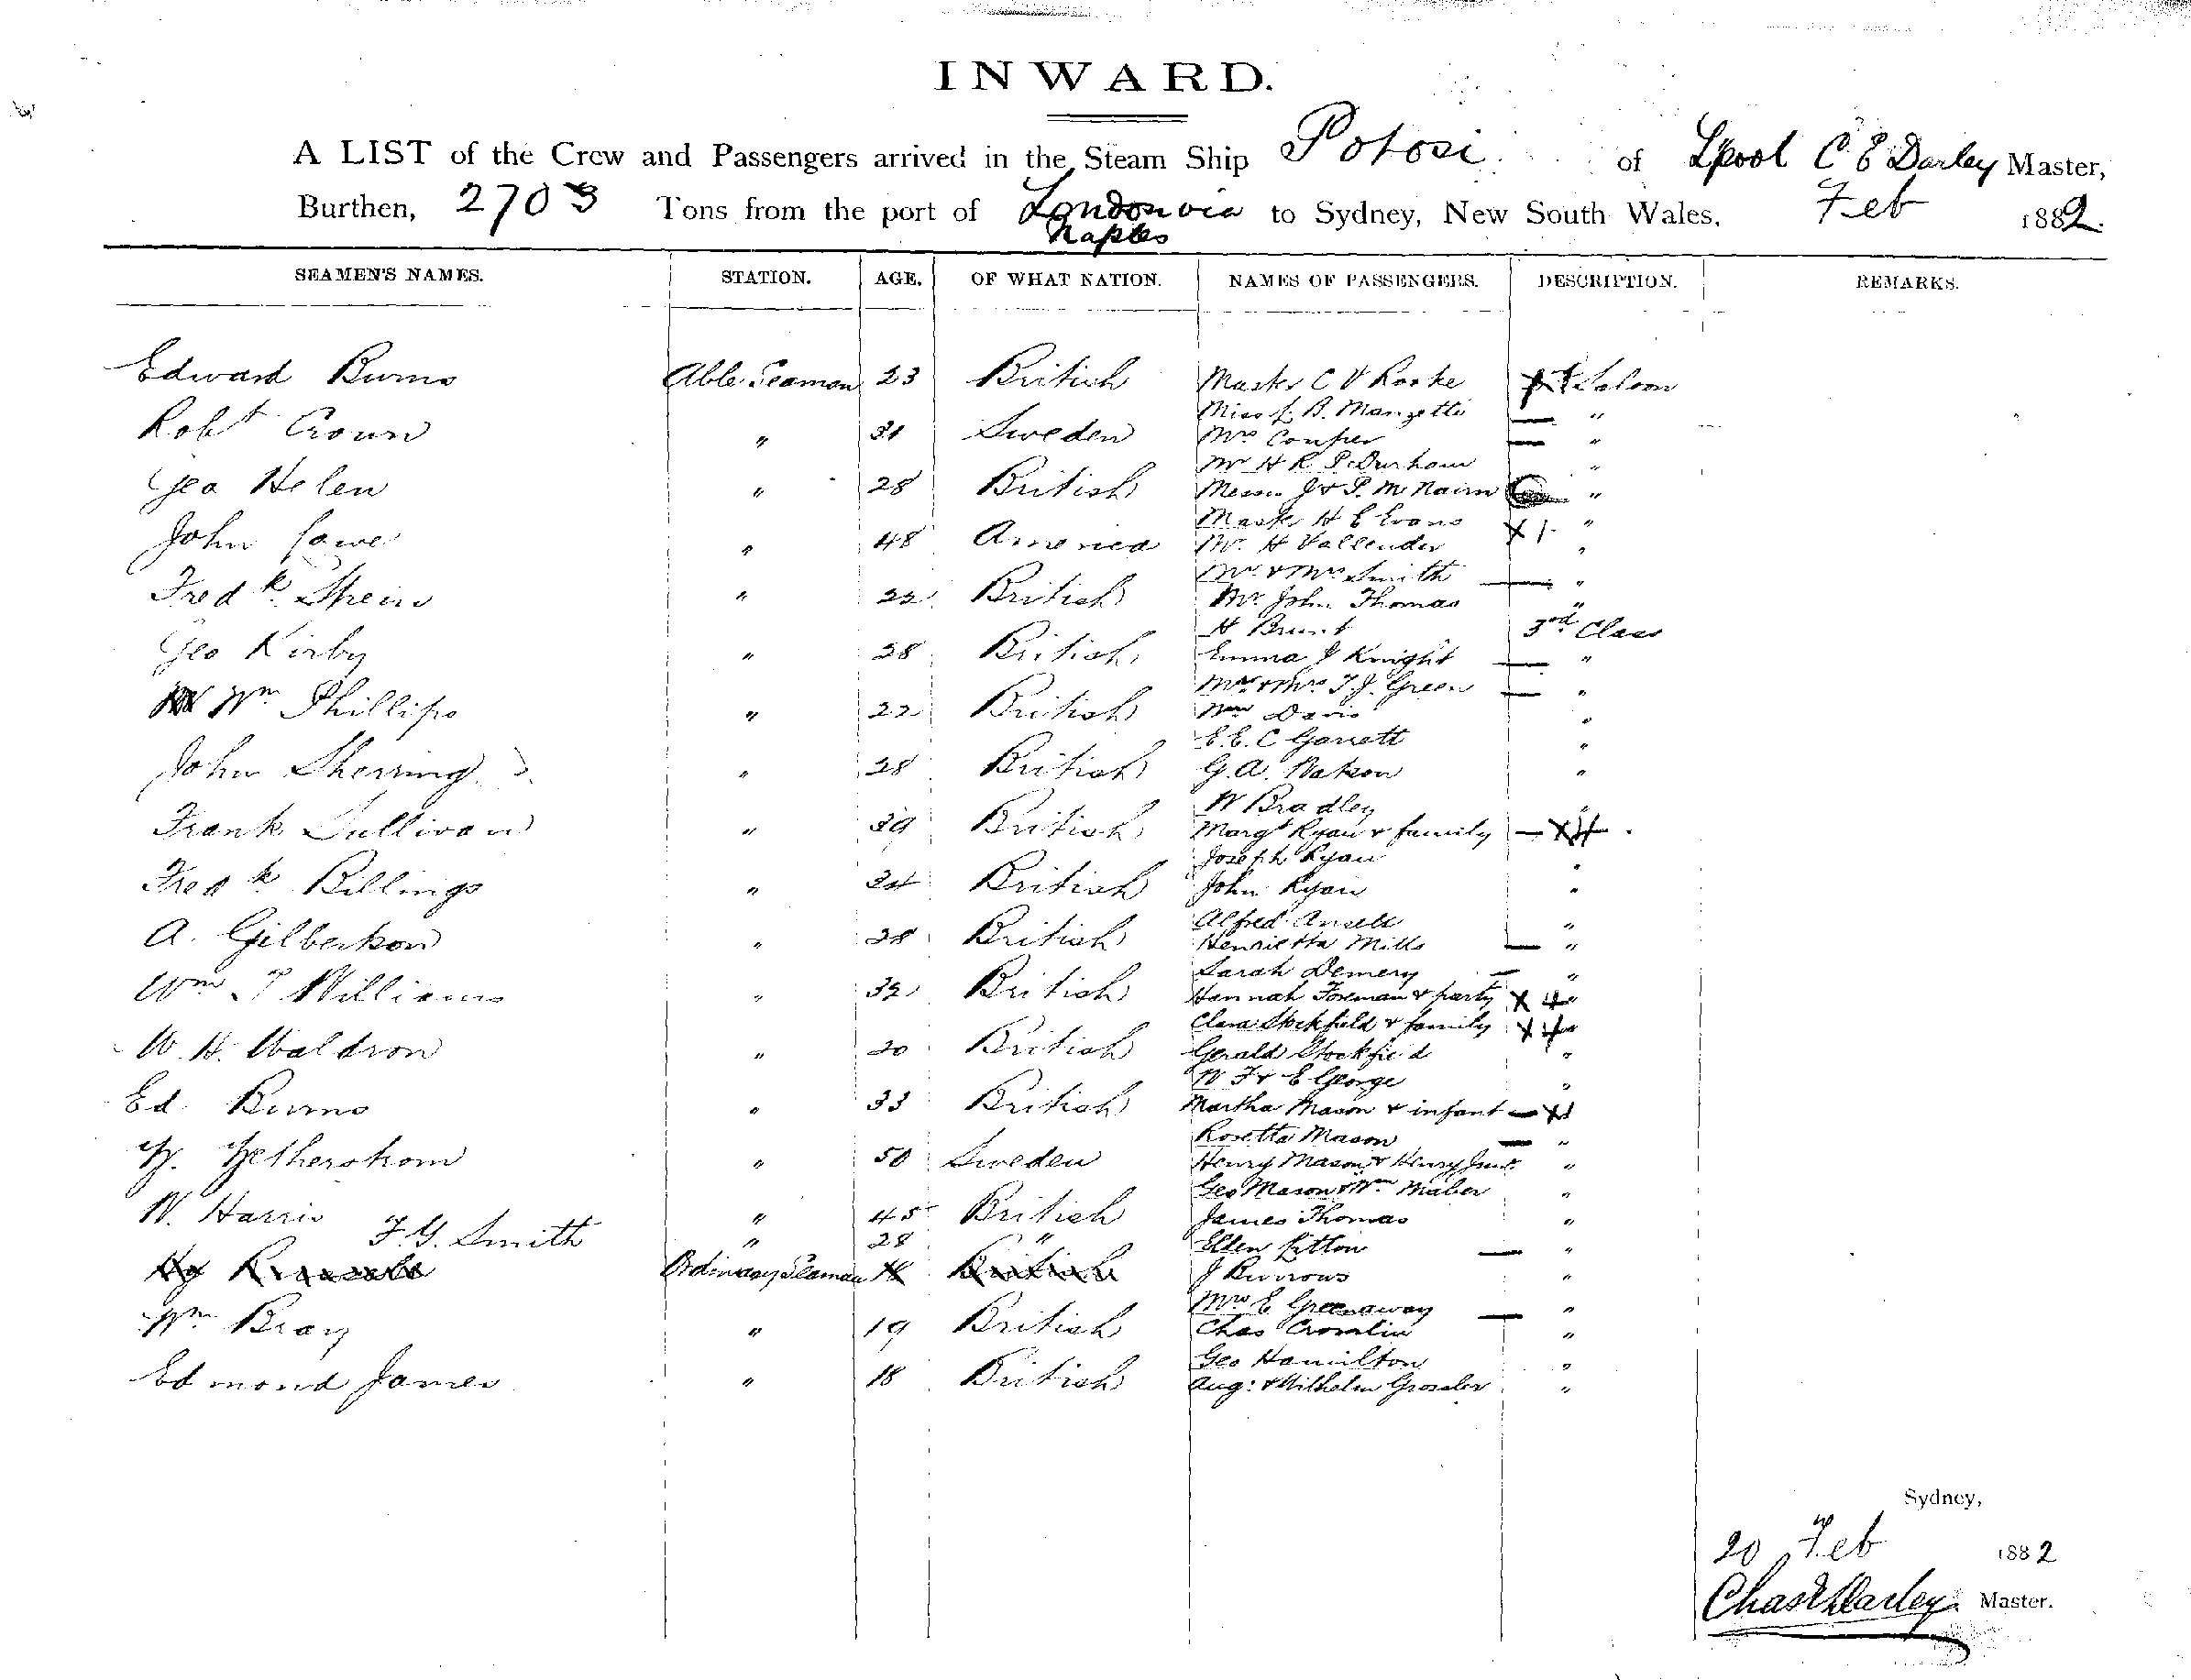 INWARD.
A LIST of the Crew and Passengers arrived in the Steam Ship Potosi of Lpool C E Darley Master,
Burthen, 2703 Tons from the port of London via Naples to Sydney, New South Wales, Feb 1882.
SEAMEN'S NAMES. STATION. AGE. OF WHAT NATION. NAMES OF PASSENGERS. DESCRIPTION. REMARKS.
Edward Burns Able Seaman 23 British Master C V Rorke Saloon
Miss L. B. Manzetti "
Robt Crown " 31 Sweden Mrs Couper "
Mr H R P. Durham "
Geo Helen " 28 British Messrs J & P. McNairn "
Master H E Evans "
John Lowe " 48 America Mr. H Vallender "
Mr. & Mrs Smith "
Fredk. Shein " 22 British Mr. John Thomas "
H Brunt 3rd Class
Geo Kirby " 28 British Emma J Knight "
Mr & Mrs T. J. Green "
Wm Phillips " 22 British Davis "
E. E. C Garrett "
John Sherring " 28 British G. A. Watson "
W Bradley "
Frank Sullivan " 39 British Margt Ryan & family
Joseph Ryan "
Fredk Billings " 24 British John Ryan "
Alfred Ansell "
A. Gilbertson " 28 British Henrietta Mills "
Sarah Demery "
Wm T Williams " 32 British Hannah Foreman & party "
Clara Stockfield & family "
W. H. Waldron " 20 British Gerald Stockfield "
W F & E George "
Ed. Burns " 33 British Martha Mason & infant
Rosetta Mason "
Hetherstrom " 50 Sweden Henry Mason & Henry Junr. "
Geo Mason & Wm Maber "
W. Harris " 45 British James Thomas "
F. G. Smith " 28 " Ellen Litton "
Ordinary Seaman British J Burrows "
Mrs E Greenaway "
Wm Bray " 19 British Chas Cromlin "
Geo Hamilton "
Edmond James " 18 British Aug: & Wilhelm Grossler "
Sydney,
20 Feb 1882
Chas E Darley Master.